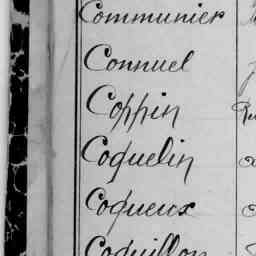 Communier
Connuel
Coppin
Coquelin
Coqueux
Coquillon